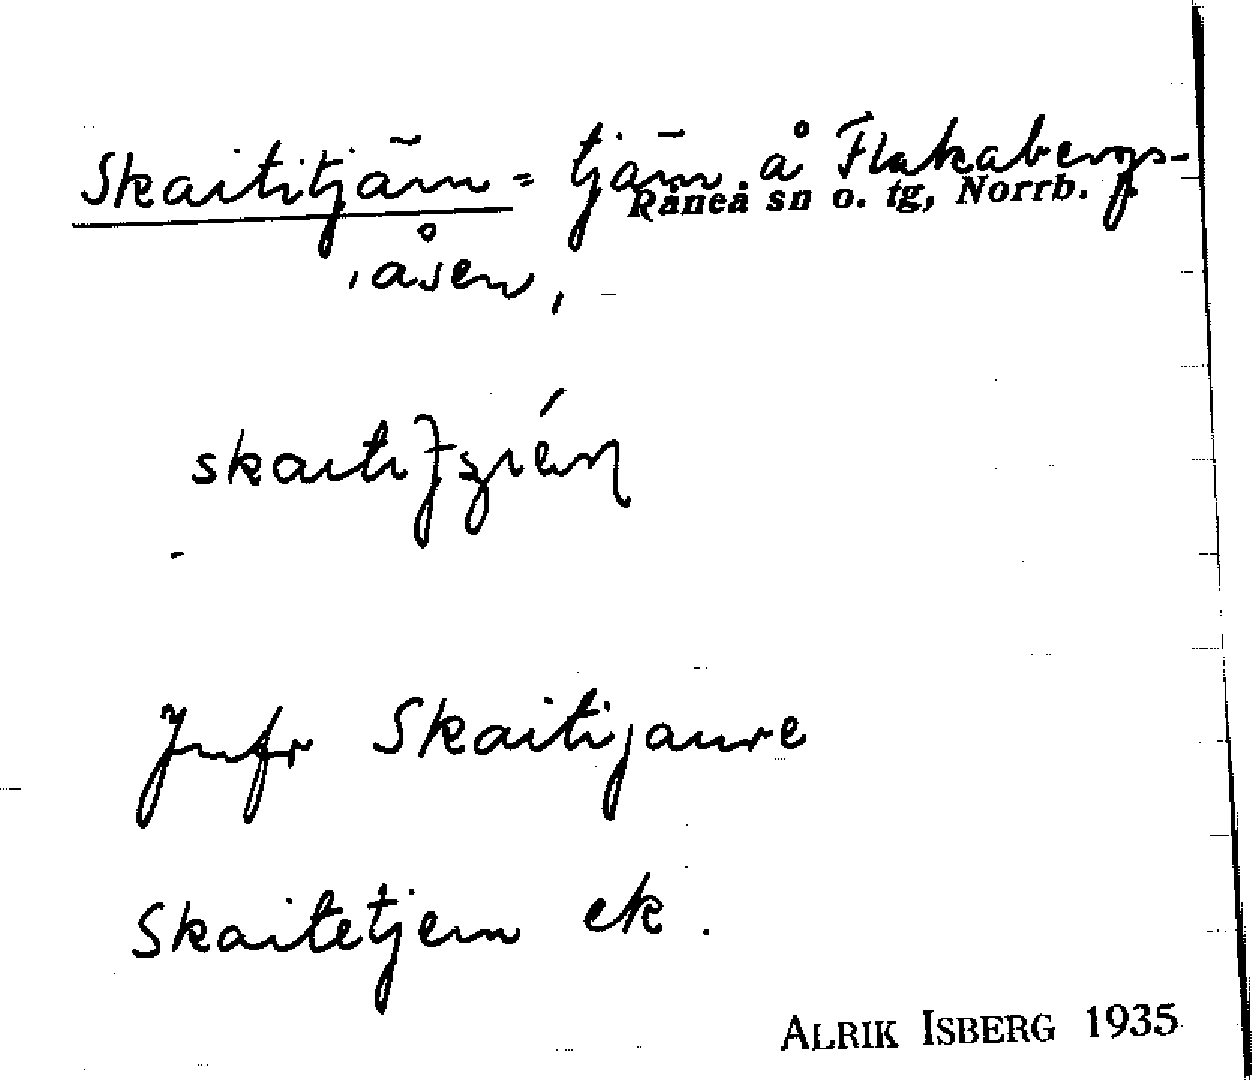 Skaititjärn = tjärn å Flakabergs-
Råneå sn o. tg, Norrb.
åsen,
Jmfr Skaitijaure
Skaitetjern ek.
ALRIK ISBERG 1935